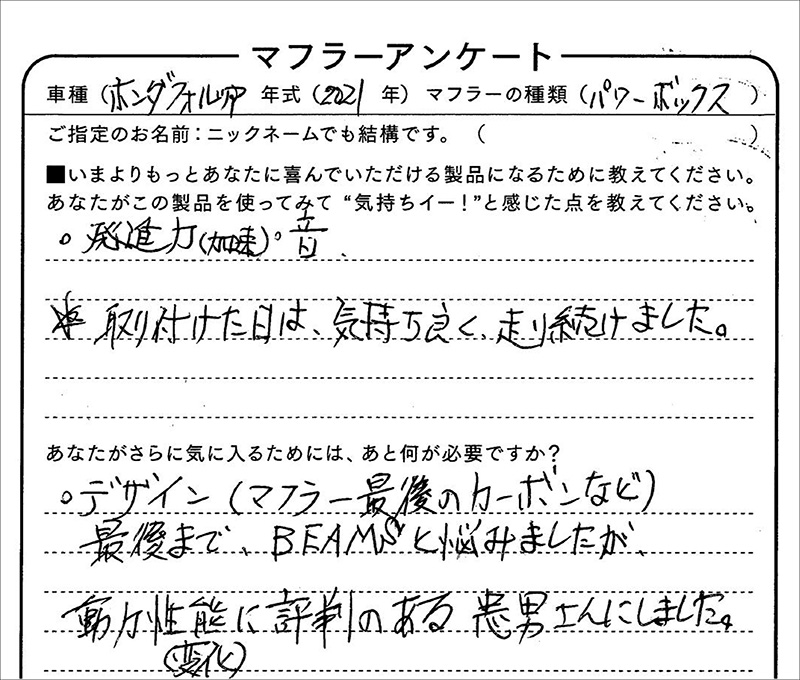 マフラーアンケート
車種（ホンダフォルツァ 年式（2021 年）マフラーの種類（パワーボックス ）
ご指定のお名前：ニックネームでも結構です。（ ）
■いまよりもっとあなたに喜んでいただける製品になるために教えてください。
あなたがこの製品を使ってみて “気持ちイー！”と感じた点を教えてください。
○発進力（加速）○音、
※取り付けた日は、気持ち良く、走り続けました。
あなたがさらに気に入るためには、あと何が必要ですか？
○デザイン（マフラー最後のカーボンなど）
最後まで、BEAMSと悩みましたが、
動力性能に評判のある 忠男さんにしました。
（変化）